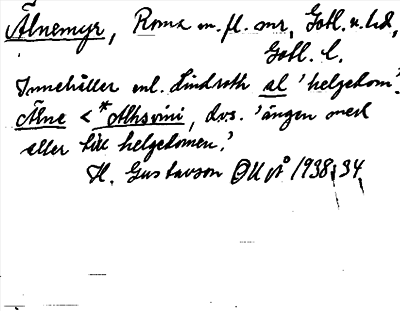 Älnemyr, Roma m. fl. snr, Gotl. n. hd,
Gotl. l.
Innehåller enl. Lindroth al 'helgedom'.
Alne < *Alhsvini, dvs. 'ängen med
eller till helgedomen.'
H. Gustavson 1938, 34